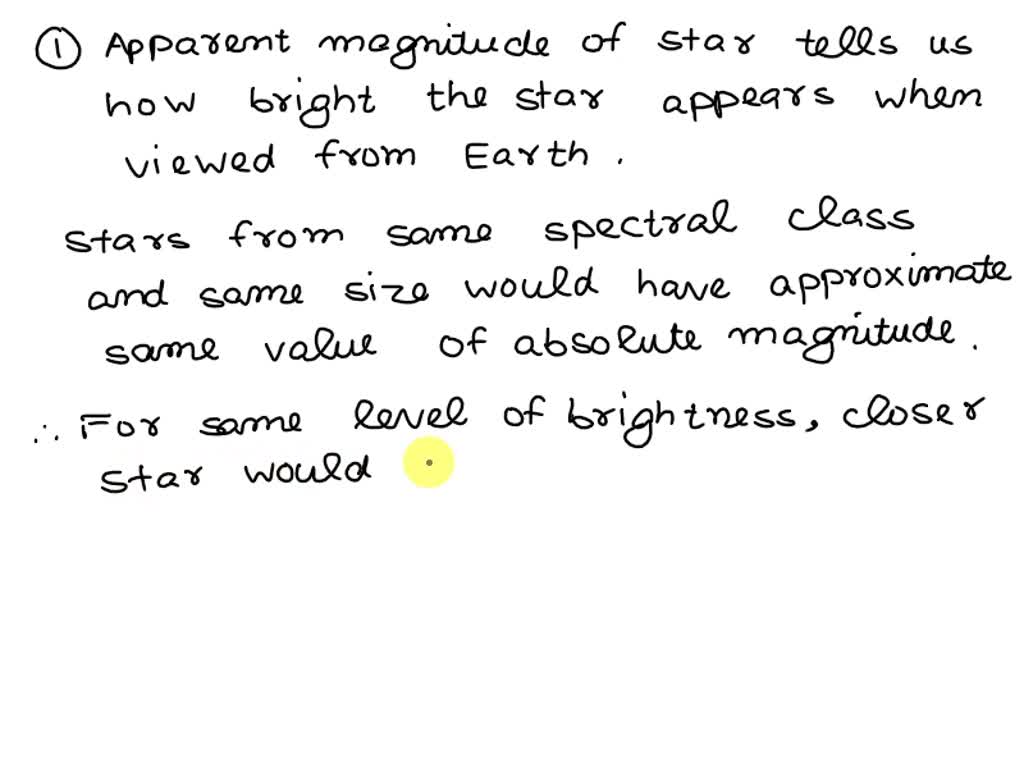 ① Apparent magnitude of star tells us
how bright the star appears when
viewed from Earth.
stars from same spectral class
and same size would have approximate
same value of absolute magnitude.
∴ For same level of brightness, closer
star would